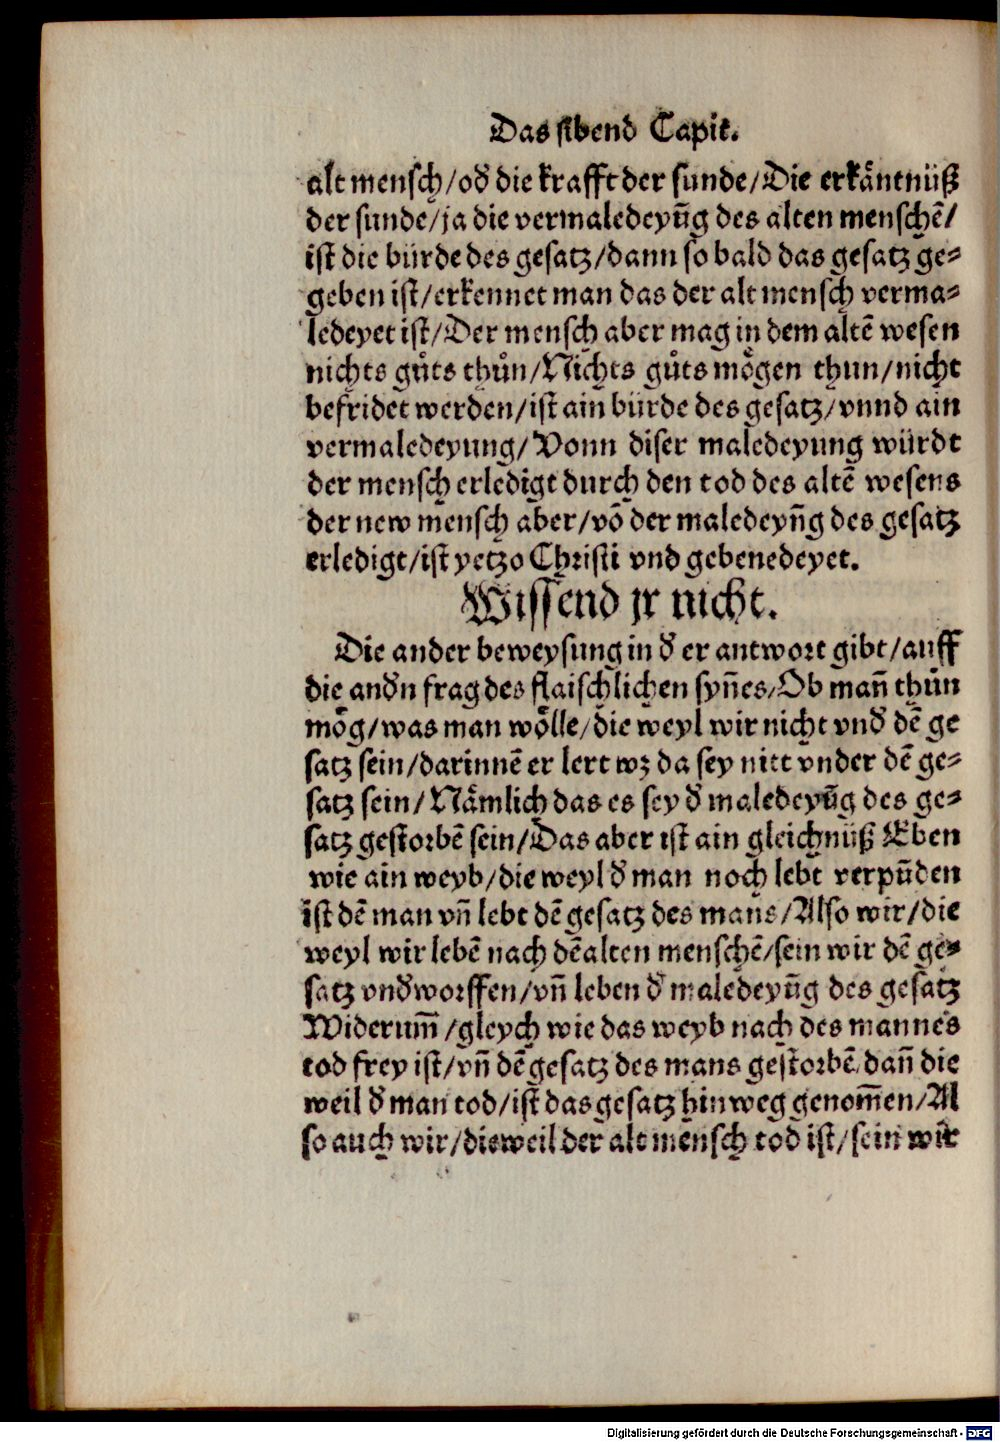 Das sibend Capit.
alt mensch/od̕ die krafft der sunde/Die erkäntnüß
der sunde/ja die vermaledeyūg des alten menschē/
ist die bürde des gesatz/dann so bald das gesatz ge⸗
geben ist/erkennet man das der alt mensch verma⸗
ledeyet ist/Der mensch aber mag in dem altē wesen
nichts gůts thůn/Nichts gůts mögen thun/nicht
befridet werden/ist ain bürde des gesatz/vnnd ain
vermaledeyung/Vonn diser maledeyung würdt
der mensch erledigt durch den tod des altē wesens
der new mensch aber/vō der maledeyn̄g des gesatz
erledigt/ist yetzo Christi vnd gebenedeyet.
Wissend jr nicht.
Die ander beweysung in d̕ er antwort gibt/auff
die and̕n frag des flaischlichen syn̄es/Ob man̄ thůn
mög/was man wölle/die weyl wir nicht vnd̕ dē ge
satz sein/darinnē er lert wz da sey nitt vnder dē ge⸗
satz sein/Nämlich das es sey d̕ maledeyūg des ge⸗
satz gestorbē sein/Das aber ist ain gleichnüß Eben
wie ain weyb/die weyl d̕ man noch lebt verpūden
ist dē man vn̄ lebt dē gesatz des mans/Also wir/die
weyl wir lebē nach dē alten menschē/sein wir dē ge⸗
satz vnd̕worffen/vn̄ leben d̕ maledeyūg des gesatz
Widerum̄/gleych wie das weyb nach des mannes
tod frey ist/vn̄ dē gesatz des mans gestorbē/dan̄ die
weil d̕ man tod/ist das gesatz hinweg genom̄en/Al
so auch wir/dieweil der alt mensch tod ist/sein wir
Digitalisierung gefördert durch die Deutsche Forschungsgemeinschaft - DFG